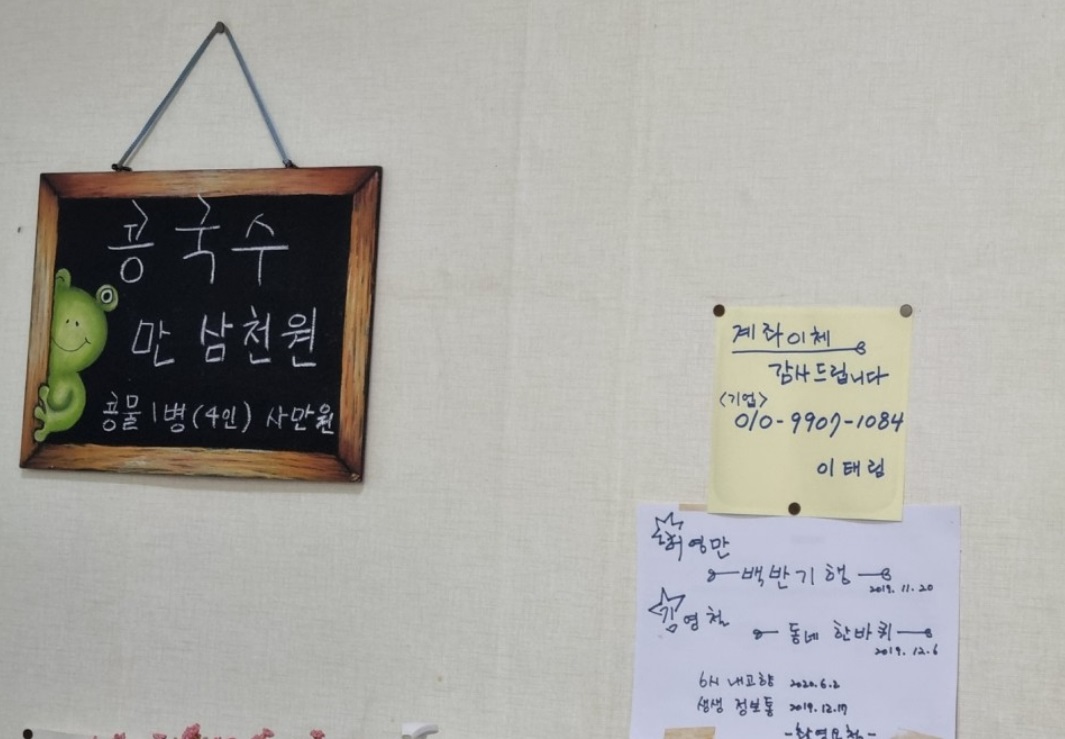 콩국수
만 삼천원
콩물 1병(4인) 사만원
계좌이체
감사드립니다
<기업>
010-9907-1084
이태림
허영만
백반기행
2019. 11. 20
김영철
동네 한바퀴
2019. 12. 6
6시 내고향 2020. 6. 2
생생 정보통 2019. 12. 17